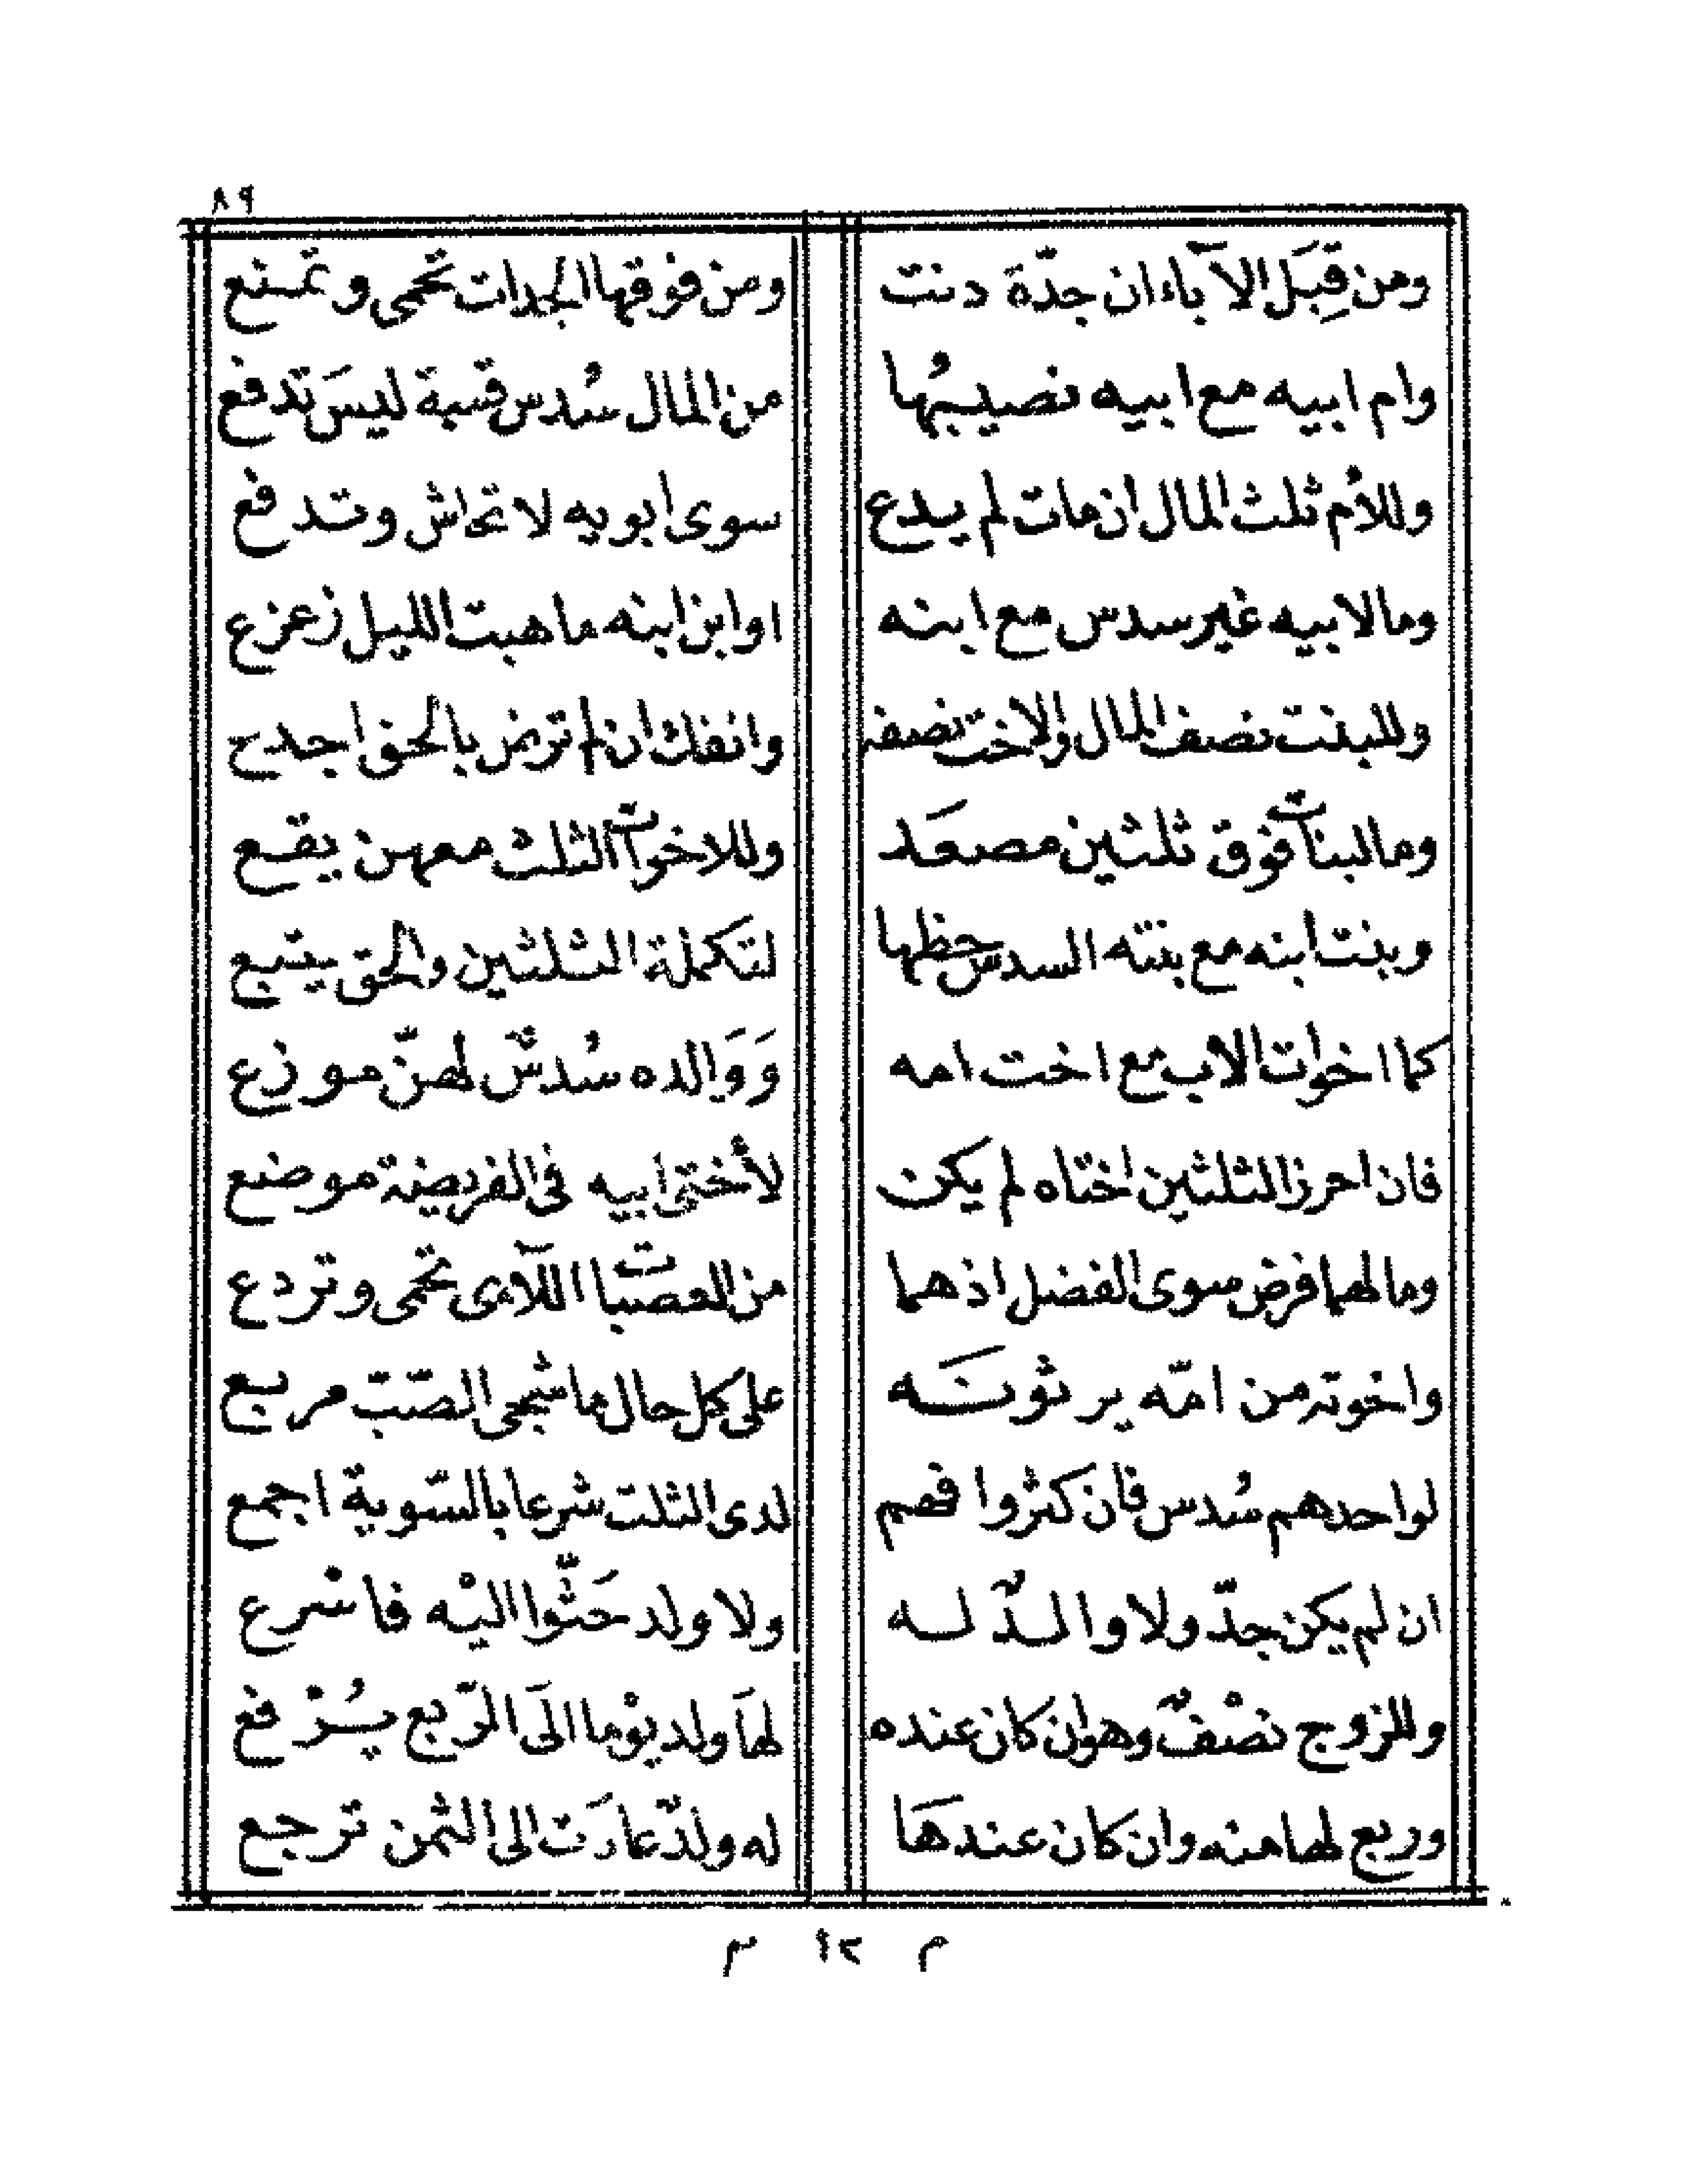 ٨٩
ومن قِبَل الآباء ان جدّة دنت ومن فوقها الجدات تحمى وتمنع
وام ابيه مع ابيه نصيبُها من المال سُدس قسمة ليسَ تدفع
وللأم ثلث المال ان مات لم يدع سوى ابويه لا تحاش وتدفع
وما لابيه غير سدس مع ابنه او ابن ابنه ما هبت الليل زعزع
وللبنت نصف المال والاخت نصفه وانفك ان لم ترض بالحق اجدع
وما لبنات فوق ثلثين مصعَد وللاخوات الثلث معهن يقع
وبنت ابنه مع بنته السدس حظها لتكملة الثلثين والحق يتبع
كما اخوات الاب مع اخت امه وَوَالده سُدسٌ لهنّ موزع
فان احرز الثلثين اختاه لم يكن لأختى ابيه فى الفريضة موضع
وما لهما فرض سوى الفضل اذ هما من العصبات اللآمى تحمى وتردع
واخوته من امّه يرثونَه على كل حال ما شجى الصّبّ مربع
لواحدهم سُدس فان كثروا فهم لدى الثلث شرعا بالسّوية اجمع
ان لم يكن جدّ ولا والدٌ له ولا ولد حَثّوا اليْه فاسْرع
وللزوج نصْفٌ وهو ان كان عنده لهَا ولد يوْما الَى الرّبع يُرْفع
وربع لها منه وان كان عندهَا له ولدٌ عادَت الى الثمن ترجع
م ١٢ س